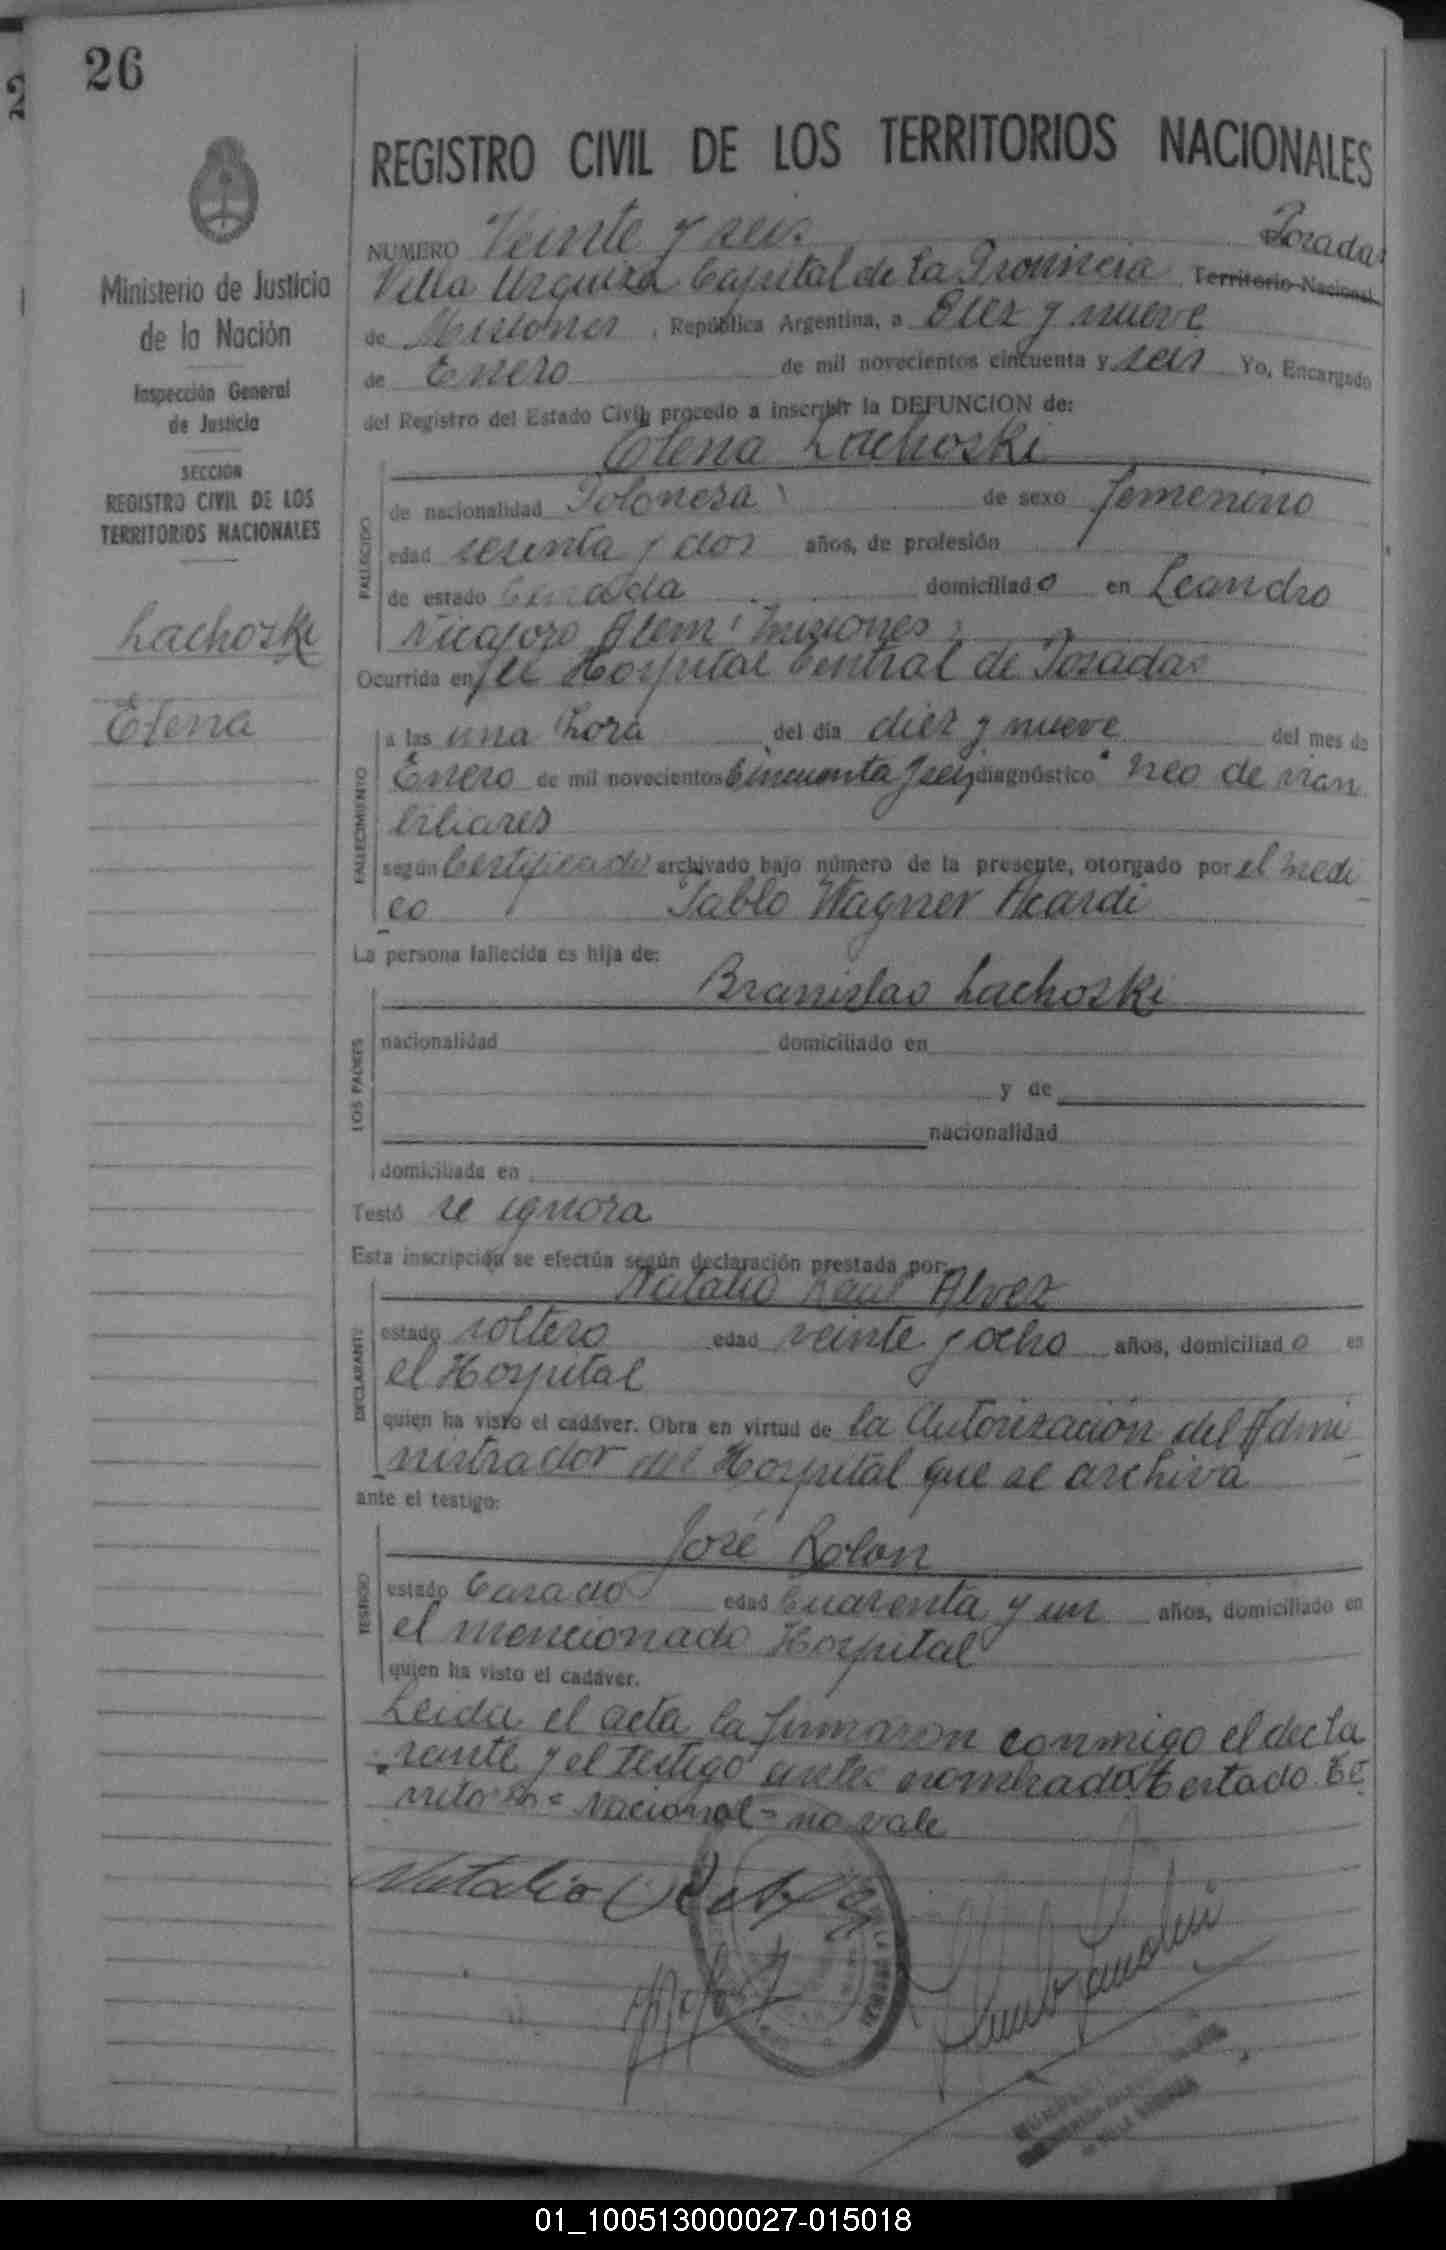 26
REGISTRO CIVIL DE LOS TERRITORIOS NACIONALES
Ministerio de Justicia
de la Nación
Inspección General
de Justicia
SECCION
REGISTRO CIVIL DE LOS
TERRITORIOS NACIONALES
Lachoski
Elena
NUMERO Veinte y seis Posadas
Villa Urquiza Capital de la Provincia, Territorio Nacional
de Misiones, República Argentina, a Diez y nueve
de Enero de mil novecientos cincuenta y seis Yo, Encargado
del Registro del Estado Civil, procedo a inscribir la DEFUNCION de:
Elena Lachoski
FALLECIDO
de nacionalidad Polonesa de sexo femenino
edad sesenta y dos años, de profesión
de estado casada domiciliado en Leandro
Nicasoro Alem: Misiones
Ocurrida en el Hospital Central de Posadas
FALLECIMIENTO
a las una hora del día diez y nueve del mes de
Enero de mil novecientos Cincuenta y seis, diagnóstico neo de vian
biliares
según Certificado archivado bajo número de la presente, otorgado por el medi
co Pablo Wagner Acardi
La persona fallecida es hija de:
LOS PADRES
Branislao Lachoski
nacionalidad domiciliado en
y de
nacionalidad
domiciliada en
Testó se ignora
Esta inscripción se efectúa según declaración prestada por:
DECLARANTE
Natalio Raul Alvez
estado soltero edad veinte y ocho años, domiciliado en
el Hospital
quien ha visto el cadáver. Obra en virtud de la Autorización del Admi
nistrador del Hospital que se archiva
ante el testigo:
TESTIGO
José Rolon
estado Casado edad Cuarenta y un años, domiciliado en
el mencionado Hospital
quien ha visto el cadáver.
Leida el acta la firmaron conmigo el decla
rante y el testigo antes nombrado. Testado Te
rritorio = Nacional = no vale
Natalio
01_100513000027-015018